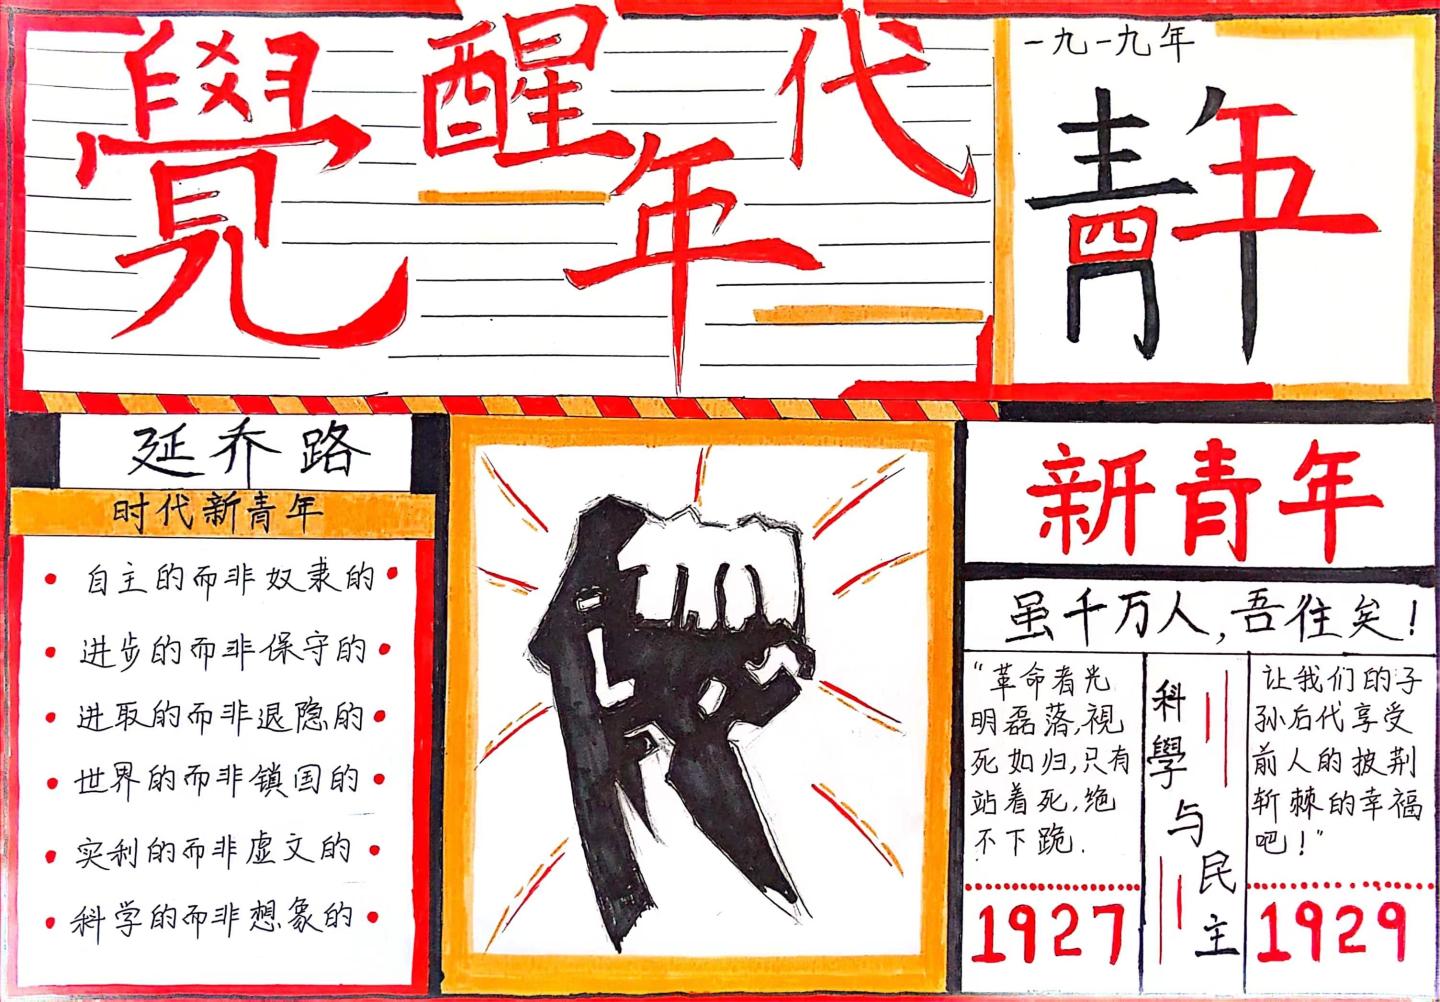 覺醒年代
一九一九年
青年
四五
延乔路
时代新青年
自主的而非奴隶的
进步的而非保守的
进取的而非退隐的
世界的而非镇国的
实利的而非虚文的
科学的而非想象的
新青年
虽千万人,吾往矣!
“革命者光
明磊落,視
死如归,只有
站着死,绝
不下跪.
1927
科學与民主
让我们的子
孙后代享受
前人的披荆
斩棘的幸福
吧!”
1929